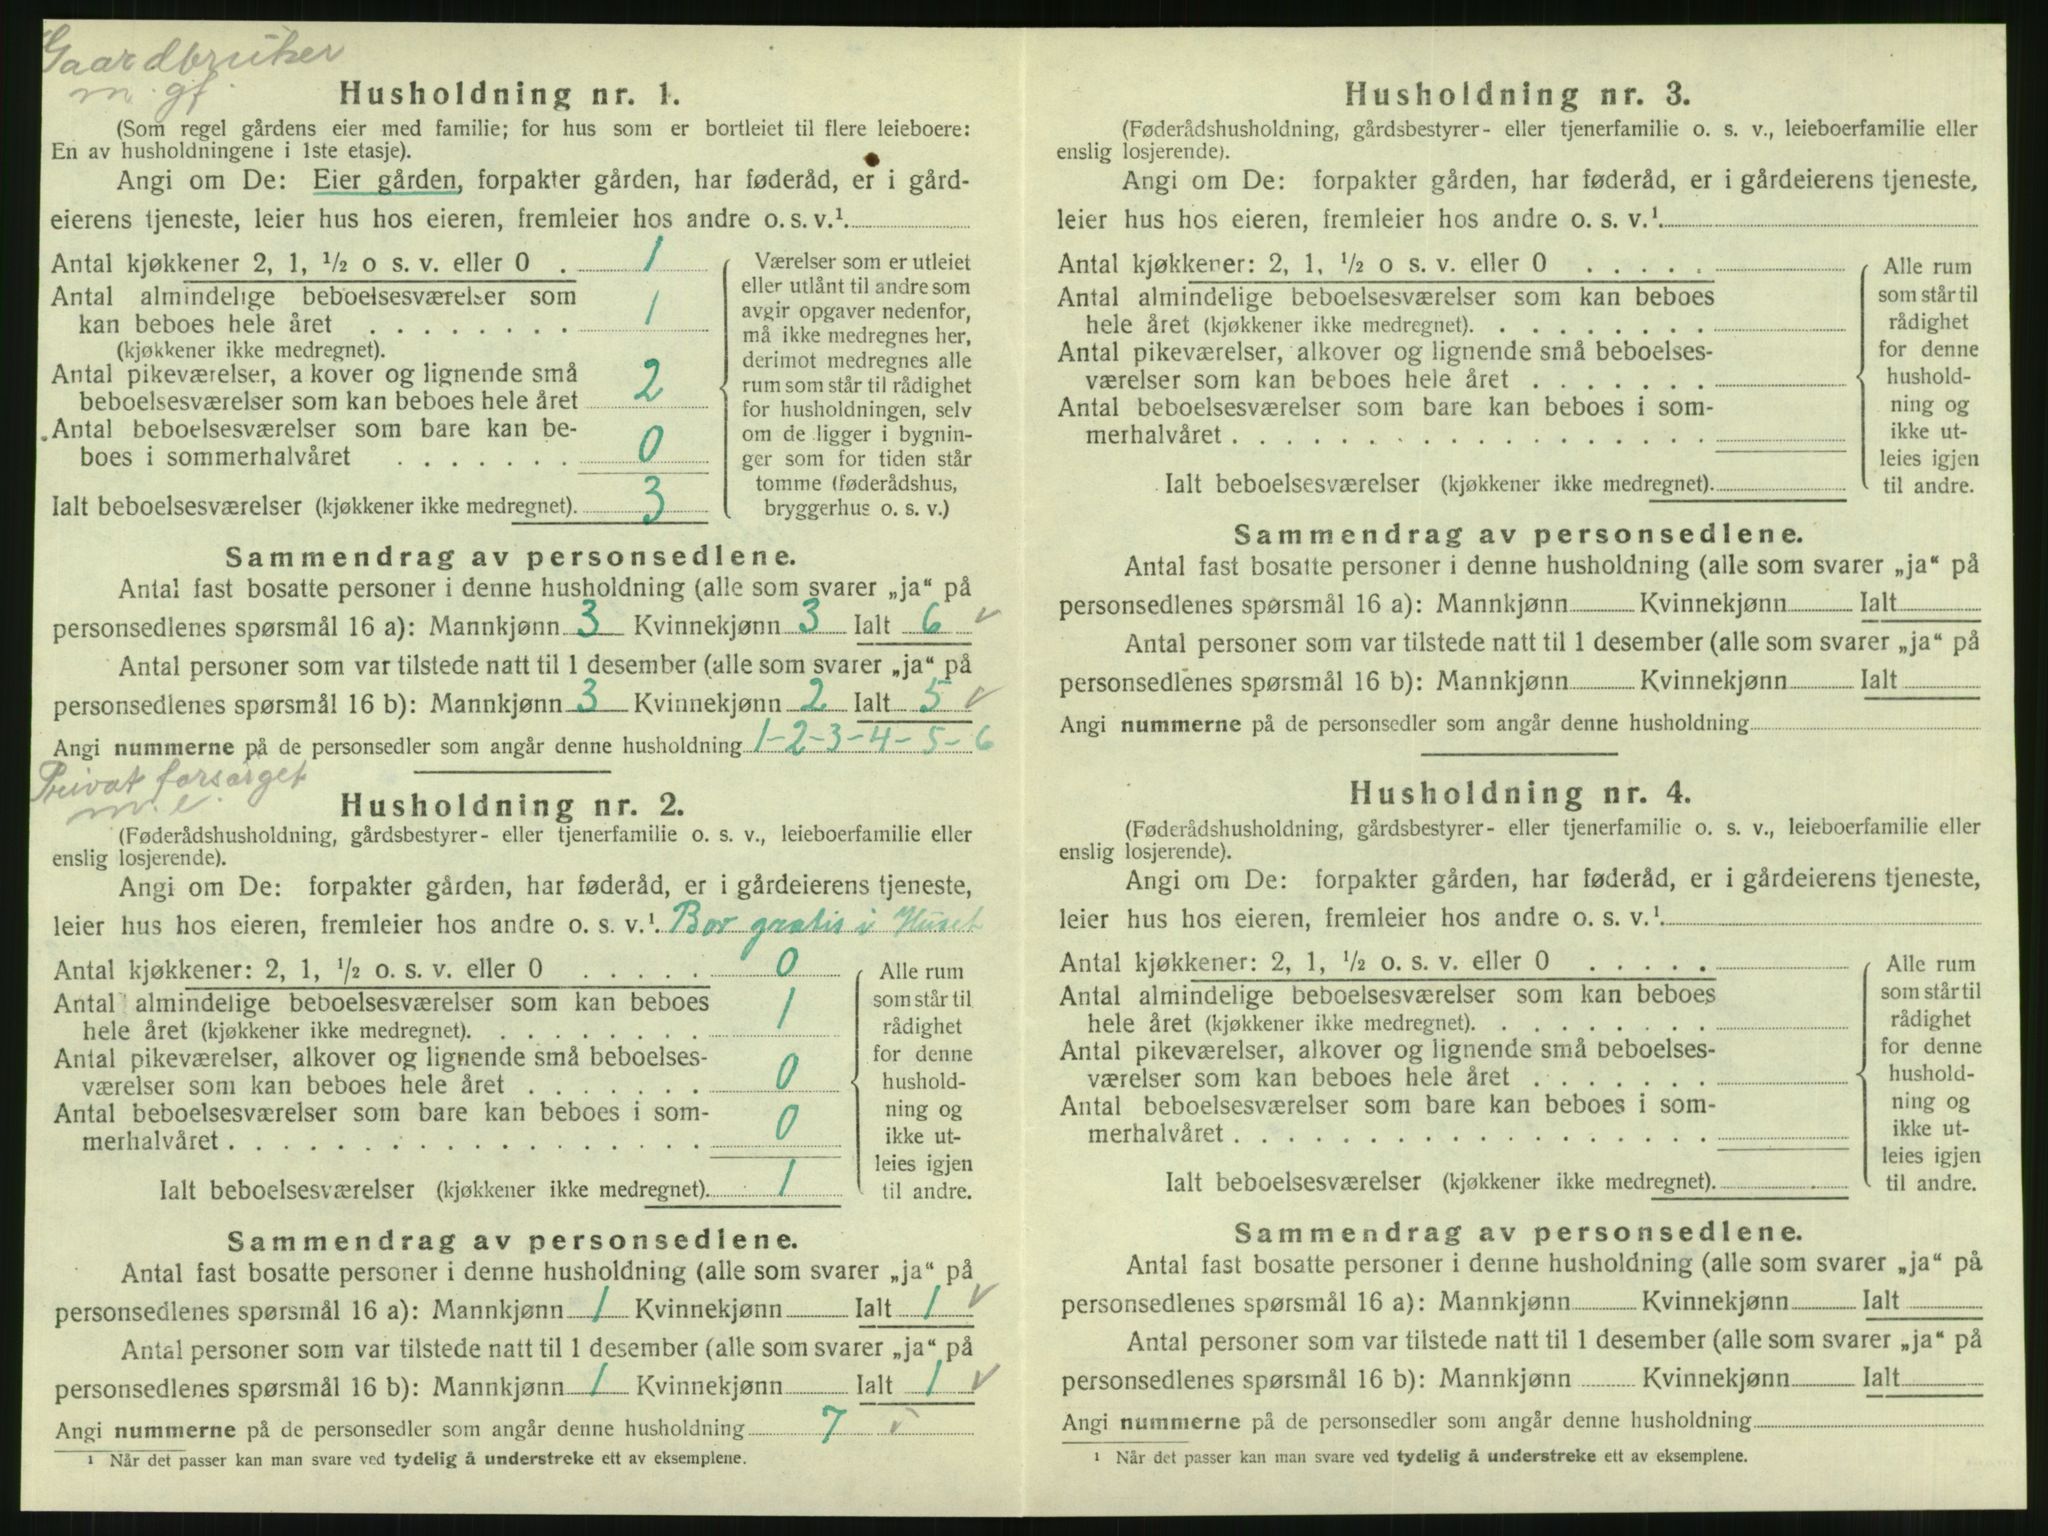 Gaardbruker
m. gf.
Husholdning nr. 1.
(Som regel gårdens eier med familie; for hus som er bortleiet til flere leieboere:
En av husholdningene i 1ste etasje).
Angi om De: Eier gården, forpakter gården, har føderåd, er i gård-
eierens tjeneste, leier hus hos eieren, fremleier hos andre o. s. v.¹.
Antal kjøkkener 2, 1, ½ o s. v. eller 0 . 1
Antal almindelige beboelsesværelser som
kan beboes hele året . . . . . . . . 1
(kjøkkener ikke medregnet).
Antal pikeværelser, a kover og lignende små
beboelsesværelser som kan beboes hele året 2
Antal beboelsesværelser som bare kan be-
boes i sommerhalvåret . . . . . . . 0
Ialt beboelsesværelser (kjøkkener ikke medregnet). 3
Værelser som er utleiet
eller utlånt til andre som
avgir opgaver nedenfor,
må ikke medregnes her,
derimot medregnes alle
rum som står til rådighet
for husholdningen, selv
om de ligger i bygnin-
ger som for tiden står
tomme (føderådshus,
bryggerhus o. s. v.)
Sammendrag av personsedlene.
Antal fast bosatte personer i denne husholdning (alle som svarer „ja“ på
personsedlenes spørsmål 16 a): Mannkjønn 3 Kvinnekjønn 3 Ialt 6 ✓
Antal personer som var tilstede natt til 1 desember (alle som svarer „ja“ på
personsedlenes spørsmål 16 b): Mannkjønn 3 Kvinnekjønn 2 Ialt 5 ✓
Angi nummerne på de personsedler som angår denne husholdning 1-2-3-4-5-6
Privat forsørget
m. l.
Husholdning nr. 2.
(Føderådshusholdning, gårdsbestyrer- eller tjenerfamilie o. s. v., leieboerfamilie eller
enslig losjerende).
Angi om De: forpakter gården, har føderåd, er i gårdeierens tjeneste,
leier hus hos eieren, fremleier hos andre o. s. v.¹. Bor gratis i Huset
Antal kjøkkener: 2, 1, ½ o. s. v. eller 0 . . . . . 0
Antal almindelige beboelsesværelser som kan beboes
hele året (kjøkkener ikke medregnet). . . . . . . . . 1
Antal pikeværelser, alkover og lignende små beboelses-
værelser som kan beboes hele året . . . . . . . 0
Antal beboelsesværelser som bare kan beboes i som-
merhalvåret . . . . . . . . . . . . . . . . . . 0
Ialt beboelsesværelser (kjøkkener ikke medregnet). 1
Alle rum
som står til
rådighet
for denne
hushold-
ning og
ikke ut-
leies igjen
til andre.
Sammendrag av personsedlene.
Antal fast bosatte personer i denne husholdning (alle som svarer „ja“ på
personsedlenes spørsmål 16 a): Mannkjønn 1 Kvinnekjønn Ialt 1 ✓
Antal personer som var tilstede natt til 1 desember (alle som svarer „ja“ på
personsedlenes spørsmål 16 b): Mannkjønn 1 Kvinnekjønn Ialt 1 ✓
Angi nummerne på de personsedler som angår denne husholdning 7 ✓
¹ Når det passer kan man svare ved tydelig å understreke ett av eksemplene.
Husholdning nr. 3.
(Føderådshusholdning, gårdsbestyrer- eller tjenerfamilie o. s. v., leieboerfamilie eller
enslig losjerende).
Angi om De: forpakter gården, har føderåd, er i gårdeierens tjeneste,
leier hus hos eieren, fremleier hos andre o. s. v.¹.
Antal kjøkkener: 2, 1, ½ o s. v. eller 0 . . . . .
Antal almindelige beboelsesværelser som kan beboes
hele året (kjøkkener ikke medregnet). . . . . . . . .
Antal pikeværelser, alkover og lignende små beboelses-
værelser som kan beboes hele året . . . . . . .
Antal beboelsesværelser som bare kan beboes i som-
merhalvåret . . . . . . . . . . . . . . . . . .
Ialt beboelsesværelser (kjøkkener ikke medregnet).
Alle rum
som står til
rådighet
for denne
hushold-
ning og
ikke ut-
leies igjen
til andre.
Sammendrag av personsedlene.
Antal fast bosatte personer i denne husholdning (alle som svarer „ja“ på
personsedlenes spørsmål 16 a): Mannkjønn Kvinnekjønn Ialt
Antal personer som var tilstede natt til 1 desember (alle som svarer „ja“ på
personsedlenes spørsmål 16 b): Mannkjønn Kvinnekjønn Ialt
Angi nummerne på de personsedler som angår denne husholdning
Husholdning nr. 4.
(Føderådshusholdning, gårdsbestyrer- eller tjenerfamilie o. s. v., leieboerfamilie eller
enslig losjerende).
Angi om De: forpakter gården, har føderåd, er i gårdeierens tjeneste,
leier hus hos eieren, fremleier hos andre o. s. v.¹.
Antal kjøkkener: 2, 1, ½ o. s. v. eller 0 . . . . .
Antal almindelige beboelsesværelser som kan beboes
hele året (kjøkkener ikke medregnet). . . . . . . . .
Antal pikeværelser, alkover og lignende små beboelses-
værelser som kan beboes hele året . . . . . . .
Antal beboelsesværelser som bare kan beboes i som-
merhalvåret . . . . . . . . . . . . . . . . . .
Ialt beboelsesværelser (kjøkkener ikke medregnet).
Alle rum
som står til
rådighet
for denne
hushold-
ning og
ikke ut-
leies igjen
til andre.
Sammendrag av personsedlene.
Antal fast bosatte personer i denne husholdning (alle som svarer „ja“ på
personsedlenes spørsmål 16 a): Mannkjønn Kvinnekjønn Ialt
Antal personer som var tilstede natt til 1 desember (alle som svarer „ja“ på
personsedlenes spørsmål 16 b): Mannkjønn Kvinnekjønn Ialt
Angi nummerne på de personsedler som angår denne husholdning
¹ Når det passer kan man svare ved tydelig å understreke ett av eksemplene.